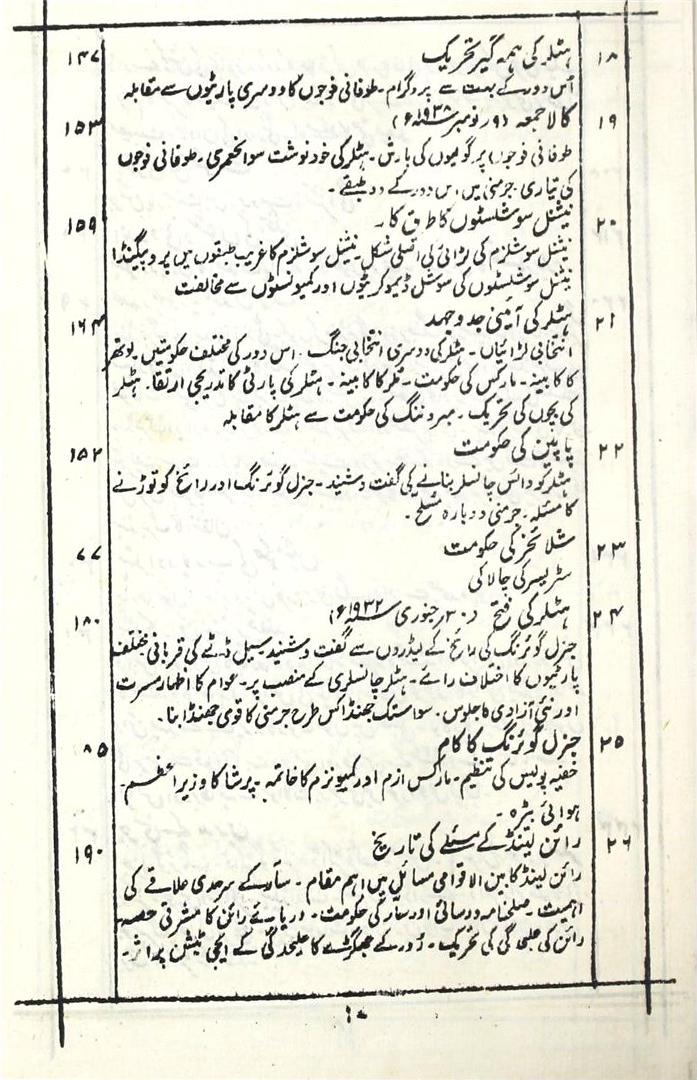 ۱۸ ہٹلر کی ہمہ گیر تحریک ۱۴۷
اُس دور کے بہت سے پروگرام۔ طوفانی فوجوں کا دوسری پارٹیوں سے مقابلہ
۱۹ کالا جمعہ (۹ر نومبر ۱۹۳۸ء) ۱۵۳
طوفانی فوجوں پر گولیوں کی بارش۔ ہٹلر کی خود نوشت سوانحعمری۔ طوفانی فوجوں
کی تیاری۔ جرمنی میں اس دور کے دو طبقے۔
۲۰ نیشنل سوشلسٹوں کا طریق کار۔ ۱۵۹
نیشنل سوشلزم کی لڑائی کی اصلی شکل۔ نیشنل سوشلزم کا غریب طبقوں میں پروپیگنڈا
نیشنل سوشلسٹوں کی سوشل ڈیموکریٹوں اور کمیونسٹوں سے مخالفت
۲۱ ہٹلر کی آئینی جدوجہد ۱۶۴
انتخابی لڑائیاں۔ ہٹلر کی دوسری انتخابی جنگ۔ اس دور کی مختلف حکومتیں۔ لوتھر
کا کابینہ۔ مارکس کی حکومت۔ مُلر کا کابینہ۔ ہٹلر کی پارٹی کا تدریجی ارتقا۔ ہٹلر
کی بچوں کی تحریک۔ بروننگ کی حکومت سے ہٹلر کا مقابلہ
۲۲ پاپین کی حکومت ۱۵۲
ہٹلر کو وائس چانسلر بنانے کی گفت و شنید۔ جنرل گوئرنگ اور رائخ کو توڑنے
کا مسئلہ۔ جرمنی دوبارہ مسلح۔
۲۳ شلائخر کی حکومت ۷۷
سٹریسر کی چالاکی
۲۴ ہٹلر کی فتح (۳۰ر جنوری ۱۹۳۲ء) ۱۸۰
جنرل گوئرنگ کی رائخ کے لیڈروں سے گفت و شنید۔ سیل ڈٹے کی قربانی۔ مختلف
پارٹیوں کا اختلاف رائے۔ ہٹلر چانسلری کے منصب پر۔ عوام کا اظہار مسرت
اور نئی آزادی کا جلوس۔ سواستک جھنڈا کس طرح جرمنی کا قومی جھنڈا بنا۔
۲۵ جنرل گوئرنگ کا کام ۸۵
خفیہ پولیس کی تنظیم۔ مارکس ازم اور کمیونزم کا خاتمہ۔ پرشا کا وزیر اعظم۔
ہوائی بیڑہ۔
۲۶ رائن لینڈ کے مسئلے کی تاریخ ۱۹۰
رائن لینڈ کا بین الاقوامی مسائل میں اہم مقام۔ سار کے سرحدی علاقے کی
اہمیت۔ صلحنامہ ورسائی اور سار کی حکومت۔ دریائے رائن کا مشرقی حصہ۔
رائن کی علیحدگی کی تحریک۔ رُور کے جھگڑے کا علیحدگی کے ایجی ٹیشن پر اثر۔
۱۰